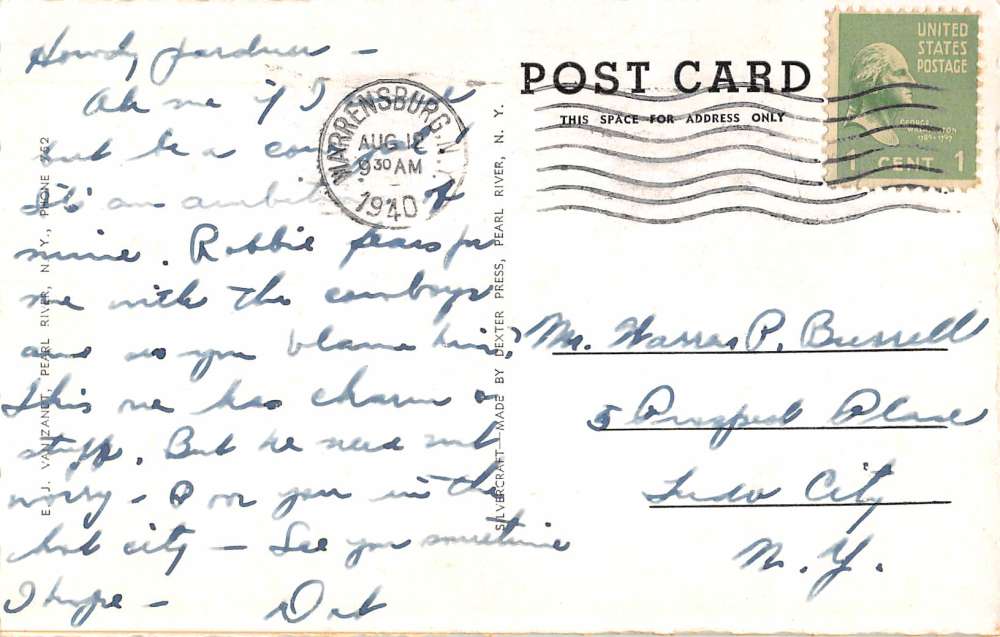 Howdy pardner -
Ah me if I
not be a
It's an ambition of
mine. Robbie fears for
me with the cowboys
and do you blame him?
This one has charm &
stuff. But he need not
worry - Poor you in the
hot city - See you sometime
I hope - Dot
WARRENSBURG, N.Y.
AUG 12
9 30 AM
1940
POST CARD
THIS SPACE FOR ADDRESS ONLY
UNITED
STATES
POSTAGE
GEORGE
WASHINGTON
1789-1797
1 CENT 1
Mr. Warren P. Bussell
5 Prospect Place
Tudor City
N.Y.
E. J. VANIZANDT, PEARL RIVER, N.Y., PHONE 952
SILVERCRAFT—MADE BY DEXTER PRESS, PEARL RIVER, N. Y.